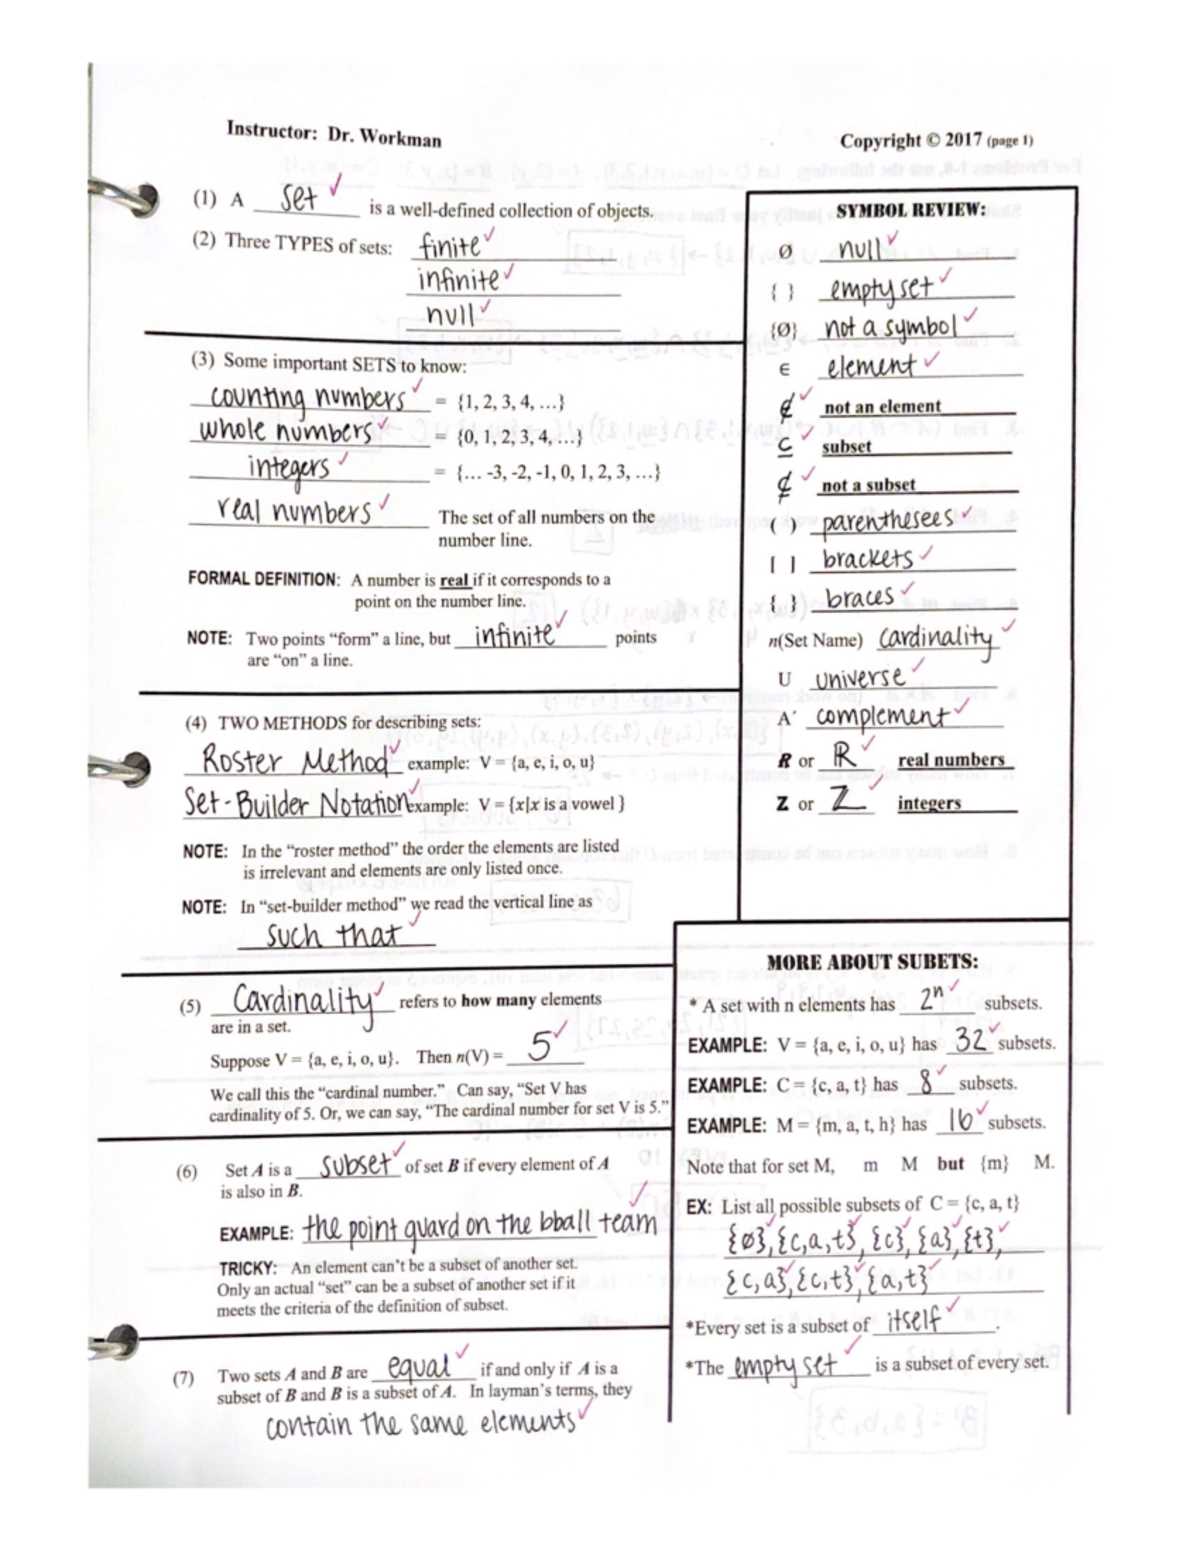 Instructor: Dr. Workman
Copyright © 2017 (page 1)
(1) A set is a well-defined collection of objects.
(2) Three TYPES of sets: finite
infinite
null
(3) Some important SETS to know:
counting numbers = {1, 2, 3, 4, …}
whole numbers = {0, 1, 2, 3, 4, …}
integers = {… -3, -2, -1, 0, 1, 2, 3, …}
real numbers The set of all numbers on the
number line.
FORMAL DEFINITION: A number is real if it corresponds to a
point on the number line.
NOTE: Two points “form” a line, but infinite points
are “on” a line.
(4) TWO METHODS for describing sets:
Roster Method example: V = {a, e, i, o, u}
Set-Builder Notation example: V = {x|x is a vowel }
NOTE: In the “roster method” the order the elements are listed
is irrelevant and elements are only listed once.
NOTE: In “set-builder method” we read the vertical line as
such that
(5) Cardinality refers to how many elements
are in a set.
Suppose V = {a, e, i, o, u}. Then n(V) = 5
We call this the “cardinal number.” Can say, “Set V has
cardinality of 5. Or, we can say, “The cardinal number for set V is 5.”
(6) Set A is a subset of set B if every element of A
is also in B.
EXAMPLE: the point guard on the bball team
TRICKY: An element can’t be a subset of another set.
Only an actual “set” can be a subset of another set if it
meets the criteria of the definition of subset.
(7) Two sets A and B are equal if and only if A is a
subset of B and B is a subset of A. In layman’s terms, they
contain the same elements
SYMBOL REVIEW:
Ø null
{ } empty set
{Ø} not a symbol
∈ element
∉ not an element
⊆ subset
⊄ not a subset
( ) parenthesees
[ ] brackets
{ } braces
n(Set Name) cardinality
U universe
A´ complement
R or ℝ real numbers
Z or ℤ integers
MORE ABOUT SUBETS:
* A set with n elements has 2ⁿ subsets.
EXAMPLE: V = {a, e, i, o, u} has 32 subsets.
EXAMPLE: C = {c, a, t} has 8 subsets.
EXAMPLE: M = {m, a, t, h} has 16 subsets.
Note that for set M, m M but {m} M.
EX: List all possible subsets of C = {c, a, t}
{Ø}, {c,a,t}, {c}, {a}, {t},
{c,a}, {c,t}, {a,t}
*Every set is a subset of itself.
*The empty set is a subset of every set.